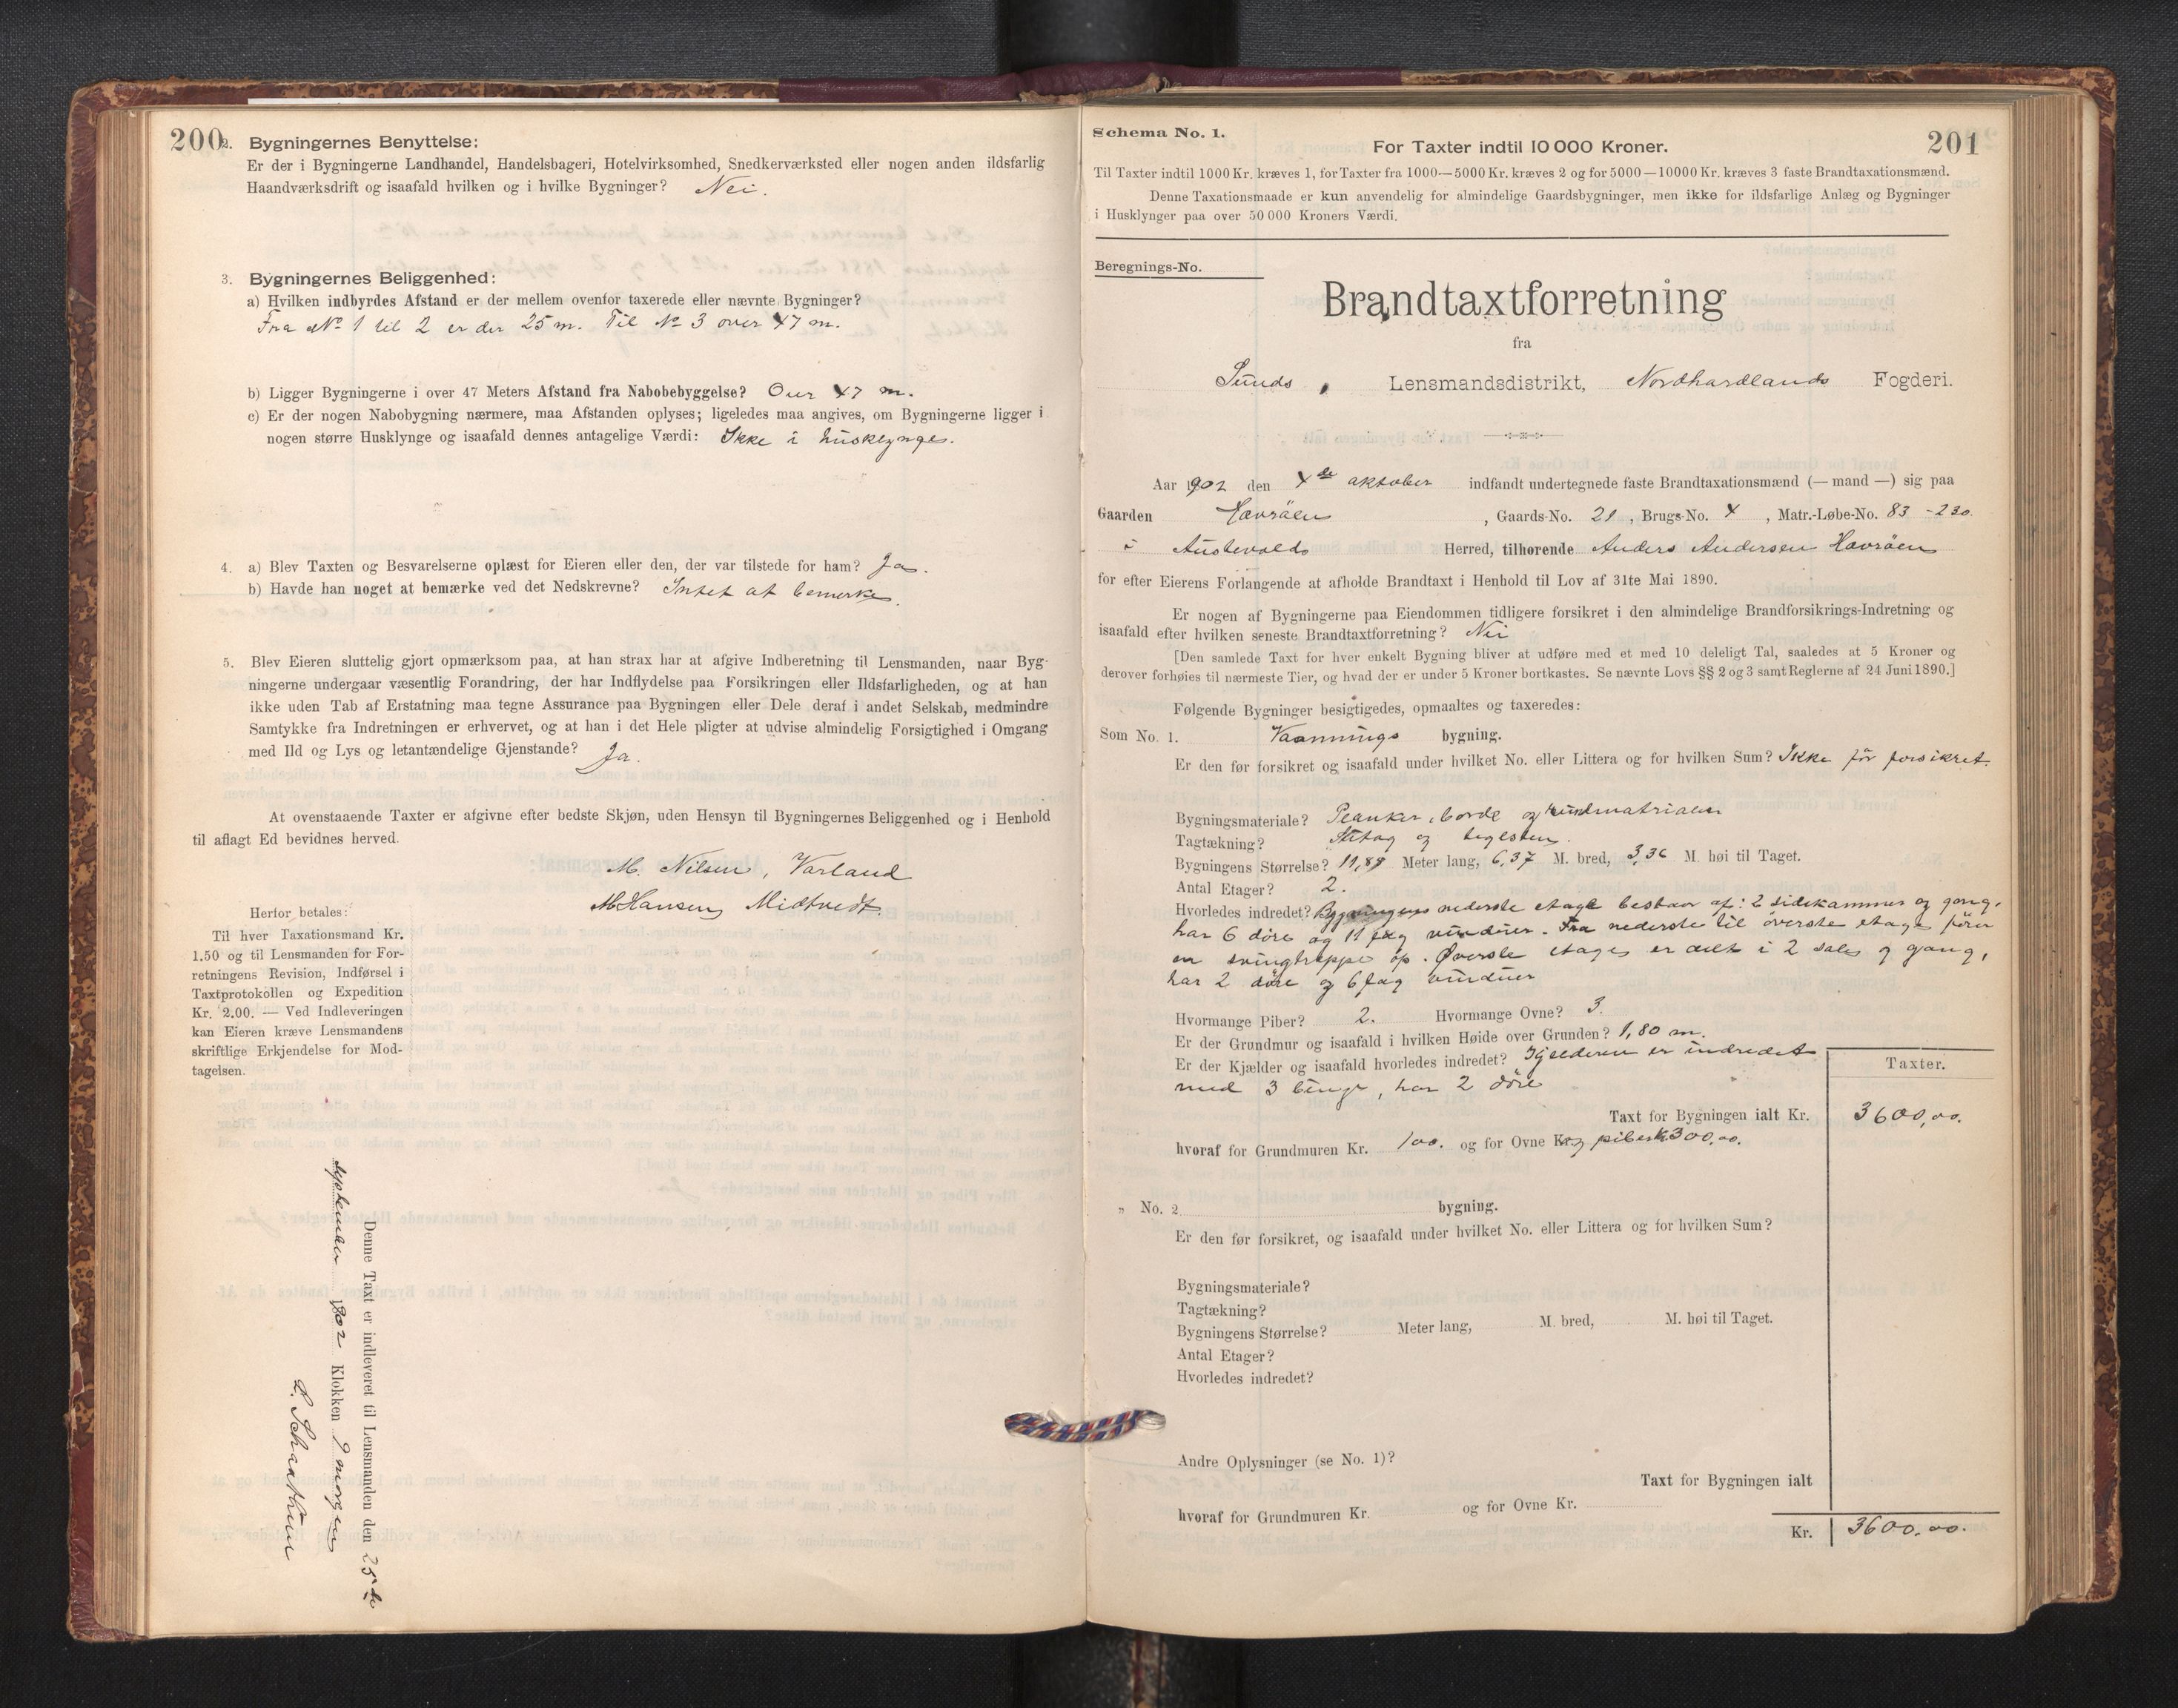 200
2. Bygningernes Benyttelse:
Er der i Bygningerne Landhandel, Handelsbageri, Hotelvirksomhed, Snedkerværksted eller nogen anden ildsfarlig
Haandværksdrift og isaafald hvilken og i hvilke Bygninger? Nei.
3. Bygningernes Beliggenhed:
a) Hvilken indbyrdes Afstand er der mellem ovenfor taxerede eller nævnte Bygninger?
Fra No 1 til 2 er der 25 m. Til No 3 over 47 m.
b) Ligger Bygningerne i over 47 Meters Afstand fra Nabobebyggelse? Over 47 m.
c) Er der nogen Nabobygning nærmere, maa Afstanden oplyses; ligeledes maa angives, om Bygningerne ligger i
nogen større Husklynge og isaafald dennes antagelige Værdi: Ikke i husklynge.
4. a) Blev Taxten og Besvarelserne oplæst for Eieren eller den, der var tilstede for ham? Ja.
b) Havde han noget at bemærke ved det Nedskrevne? Intet at bemerke.
5. Blev Eieren sluttelig gjort opmærksom paa, at han strax har at afgive Indberetning til Lensmanden, naar Byg-
ningerne undergaar væsentlig Forandring, der har Indflydelse paa Forsikringen eller Ildsfarligheden, og at han
ikke uden Tab af Erstatning maa tegne Assurance paa Bygningen eller Dele deraf i andet Selskab, medmindre
Samtykke fra Indretningen er erhvervet, og at han i det Hele pligter at udvise almindelig Forsigtighed i Omgang
med Ild og Lys og letantændelige Gjenstande? Ja.
At ovenstaaende Taxter er afgivne efter bedste Skjøn, uden Hensyn til Bygningernes Beliggenhed og i Henhold
til aflagt Ed bevidnes herved.
M. Nilsen, Varland
M Hansen Midtvedt.
Herfor betales:
Til hver Taxationsmand Kr.
1.50 og til Lensmanden for For-
retningens Revision, Indførsel i
Taxtprotokollen og Expedition
Kr. 2.00. — Ved Indleveringen
kan Eieren kræve Lensmandens
skriftlige Erkjendelse for Mod-
tagelsen.
Denne Taxt er indleveret til Lensmanden den 25de
1902 Klokken 9 morgen
201
Schema No. 1.
For Taxter indtil 10 000 Kroner.
Til Taxter indtil 1000 Kr. kræves 1, for Taxter fra 1000—5000 Kr. kræves 2 og for 5000—10000 Kr. kræves 3 faste Brandtaxationsmænd.
Denne Taxationsmaade er kun anvendelig for almindelige Gaardsbygninger, men ikke for ildsfarlige Anlæg og Bygninger
i Husklynger paa over 50 000 Kroners Værdi.
Beregnings-No.
Brandtaxtforretning
fra
Sunds Lensmandsdistrikt, Nordhordlands Fogderi.
Aar 1902 den 4de oktober indfandt undertegnede faste Brandtaxationsmænd (— mand —) sig paa
Gaarden Havröen, Gaards-No. 21, Brugs-No. 4, Matr.-Løbe-No. 83 - 230
i Austevolds Herred, tilhørende Anders Andersen Havröen
for efter Eierens Forlangende at afholde Brandtaxt i Henhold til Lov af 31te Mai 1890.
Er nogen af Bygningerne paa Eiendommen tidligere forsikret i den almindelige Brandforsikrings-Indretning og
isaafald efter hvilken seneste Brandtaxtforretning? Nei
[Den samlede Taxt for hver enkelt Bygning bliver at udføre med et med 10 deleligt Tal, saaledes at 5 Kroner og
derover forhøies til nærmeste Tier, og hvad der er under 5 Kroner bortkastes. Se nævnte Lovs §§ 2 og 3 samt Reglerne af 24 Juni 1890.]
Følgende Bygninger besigtigedes, opmaaltes og taxeredes:
Som No. 1. Vaanings bygning.
Er den før forsikret og isaafald under hvilket No. eller Littera og for hvilken Sum? Ikke för forsikret.
Bygningsmateriale? Planker, borde og
Tagtækning? og teglsten.
Bygningens Størrelse? 11,88 Meter lang, 6,37 M. bred, 3,36 M. høi til Taget.
Antal Etager? 2.
Hvorledes indredet? Bygningens nederste etage bestaar af: 2 sidekammer og gang,
har 6 döre og 11 fag vinduer. Fra nederste til överste etage förer
en svingtrappe op. Øverste etage er delt i 2 sale og gang,
har 2 döre og 6 fag vinduer
Hvormange Piber? 2. Hvormange Ovne? 3.
Er der Grundmur og isaafald i hvilken Høide over Grunden? 1,80 m.
Er der Kjælder og isaafald hvorledes indredet? Kjelderen er indredet
med 3 binge, har 2 döre
Taxter.
Taxt for Bygningen ialt Kr. 3600,00.
hvoraf for Grundmuren Kr. 100. og for Ovne Kr. og piber K 300,00.
„ No. 2 bygning.
Er den før forsikret, og isaafald under hvilket No. eller Littera og for hvilken Sum?
Bygningsmateriale?
Tagtækning?
Bygningens Størrelse? Meter lang, M. bred, M. høi til Taget.
Antal Etager?
Hvorledes indredet?
Andre Oplysninger (se No. 1)?
Taxt for Bygningen ialt
hvoraf for Grundmuren Kr. og for Ovne Kr.
Kr. 3600.00.